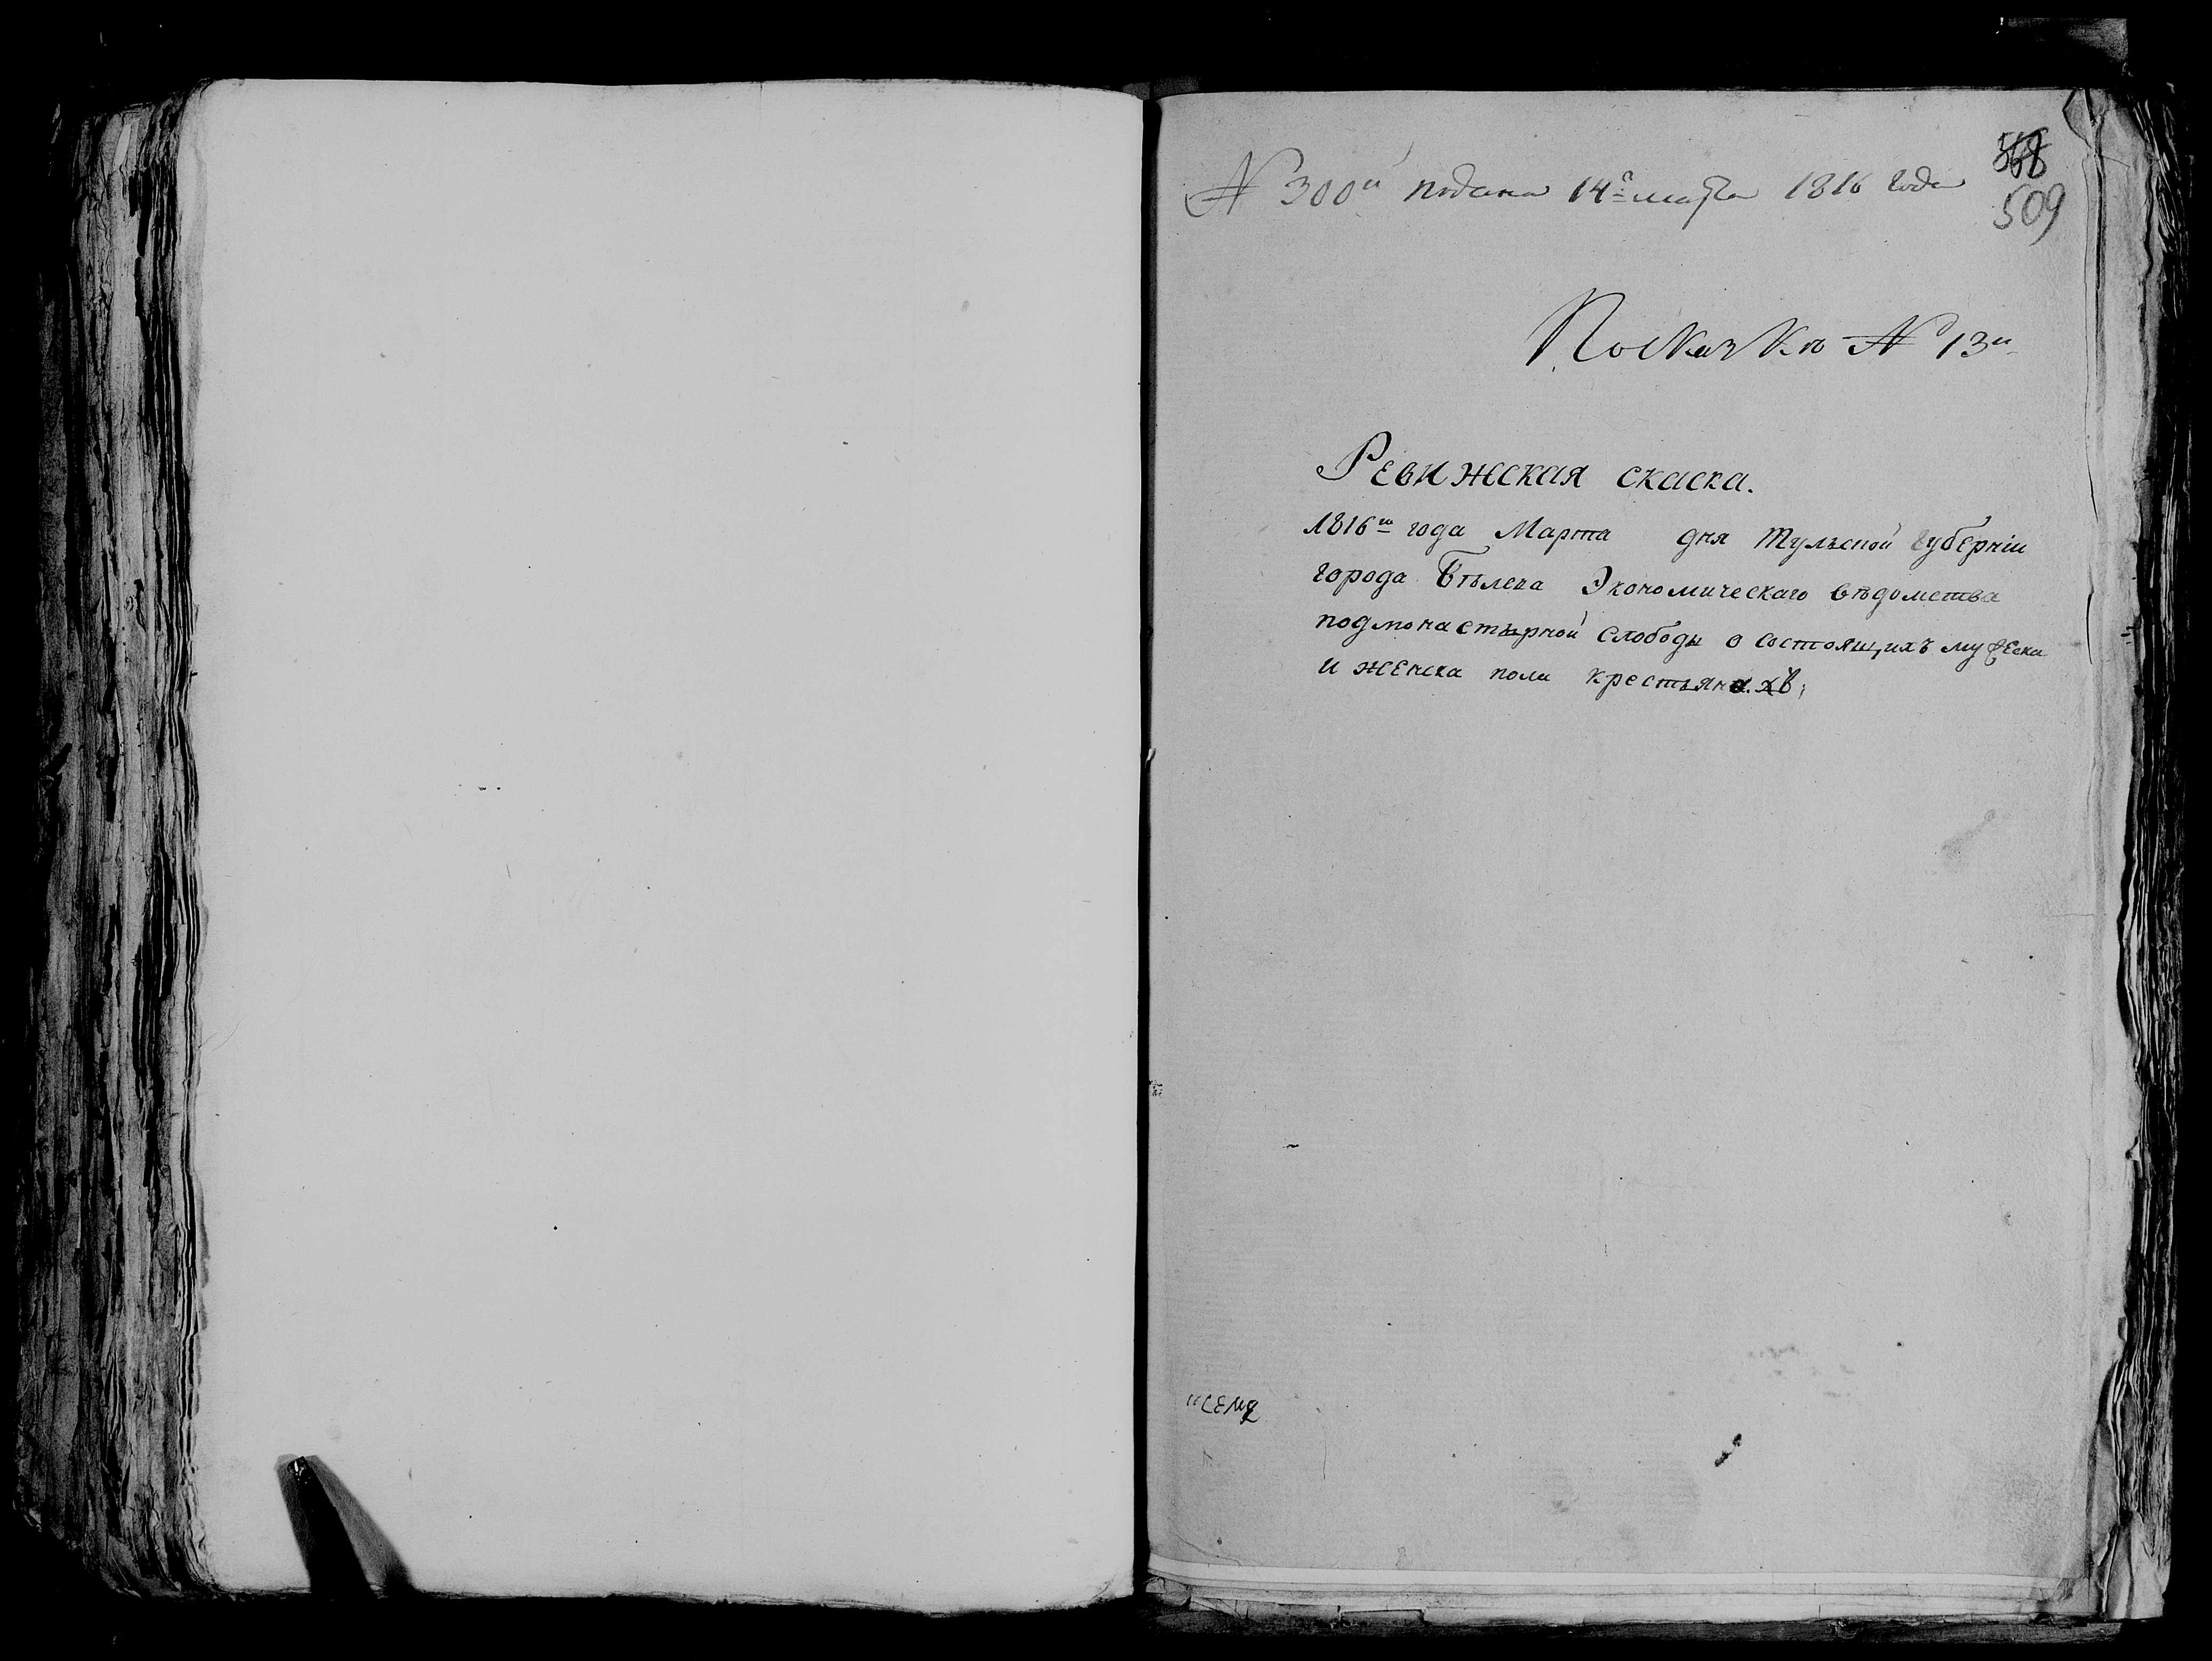 № 300й подана 14г марта 1816 года
568
509
По Сказке № 13й
Ревижская скаска.
1816го года Марта дня Тульской губерніи
города Бѣлева Экономическаго вѣдомства
подмонастырной слободы о состоящихъ мужеска
и женска пола крестьянахъ;